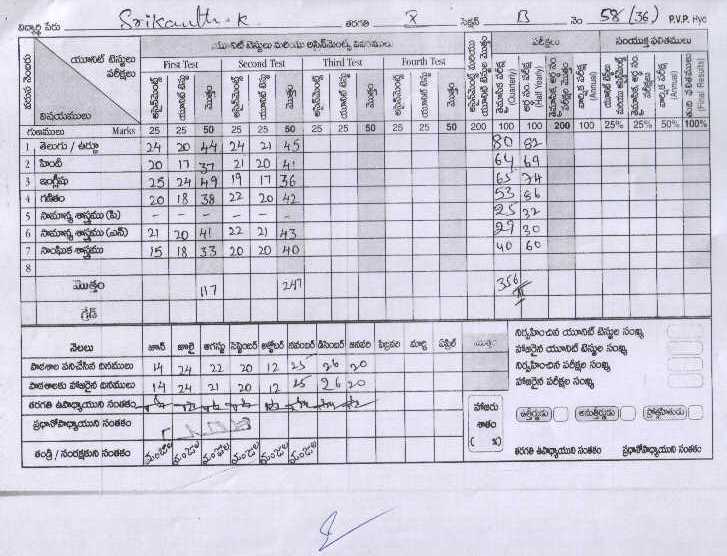 విద్యార్థి పేరు Srikanth.K తరగతి X సెక్షన్ B నెం 58 (36) P.V.P. Hyd
వరుస నెంబరు యూనిట్ టెస్టులు పరీక్షలు విషయములు యూనిట్ టెస్టులు మరియు అసైన్‌మెంట్స్ వివరములు పరీక్షలు సంయుక్త ఫలితములు
First Test Second Test Third Test Fourth Test
అసైన్‌మెంట్ యూనిట్ టెస్టు మొత్తం అసైన్‌మెంట్ యూనిట్ టెస్టు మొత్తం అసైన్‌మెంట్ యూనిట్ టెస్టు మొత్తం అసైన్‌మెంట్ యూనిట్ టెస్టు మొత్తం (Quarterly) (Half Yearly) (Annual) (Annual) (Final Results)
గుణములు Marks 25 25 50 25 25 50 25 25 50 25 25 50 200 100 100 200 100 25% 25% 50% 100%
1 తెలుగు / ఉర్దూ 24 20 44 24 21 45 80 82
2 హిందీ 20 17 37 21 20 41 64 69
3 ఇంగ్లీషు 25 24 49 19 17 36 65 74
4 గణితం 20 18 38 22 20 42 53 56
5 సామాన్య శాస్త్రము (పి) - - - - - - 25 32
6 సామాన్య శాస్త్రము (ఎన్) 21 20 41 22 21 43 29 30
7 సాంఘిక శాస్త్రము 15 18 33 20 20 40 40 60
8
మొత్తం 117 247 356
గ్రేడ్
నెలలు జూన్ జూలై ఆగస్టు సెప్టెంబర్ అక్టోబర్ నవంబర్ డిసెంబర్ జనవరి ఫిబ్రవరి మార్చి ఏప్రిల్ మొత్తం
పాఠశాల పనిచేసిన దినములు 14 24 22 20 12 25 26 20
పాఠశాలకు హాజరైన దినములు 14 24 21 20 12 25 26 20
తరగతి ఉపాధ్యాయుని సంతకం
ప్రధానోపాధ్యాయుని సంతకం
తండ్రి / సంరక్షకుని సంతకం
హాజరు శాతం ( %)
నిర్వహించిన యూనిట్ టెస్టుల సంఖ్య
హాజరైన యూనిట్ టెస్టుల సంఖ్య
నిర్వహించిన పరీక్షల సంఖ్య
హాజరైన పరీక్షల సంఖ్య
ఉత్తీర్ణుడు అనుత్తీర్ణుడు ప్రోత్సహితుడు
తరగతి ఉపాధ్యాయుని సంతకం ప్రధానోపాధ్యాయుని సంతకం